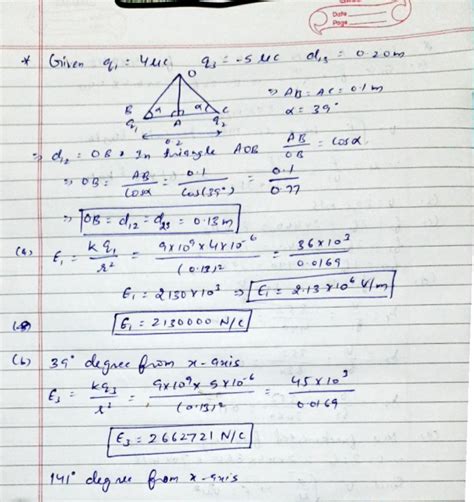 Date
Page
* Given q₁ = 4 μc q₃ = -5 μc d₁₃ = 0.20m
O
⇒ AB = AC = 0.1m
α = 39°
B α α C
q₁ A q₂
0.2
⇒ d₁₂ = OB, In triangle AOB AB/OB = cosα
⇒ OB = AB/cosα = 0.1/cos(39°) = 0.1/0.77
⇒ OB = d₁₂ = d₂₃ = 0.13m
(a) E₁ = kq₁/r² = 9x10⁹x4x10⁻⁶/(0.13)² = 36x10³/0.0169
E₁ = 2130x10³ ⇒ E₁ = 2.13x10⁶ V/m
E₁ = 2130000 N/C
(b) 39° degree from x-axis
E₃ = kq₃/r² = 9x10⁹x5x10⁻⁶/(0.13)² = 45x10³/0.0169
E₃ = 2662721 N/C
141° degree from x-axis